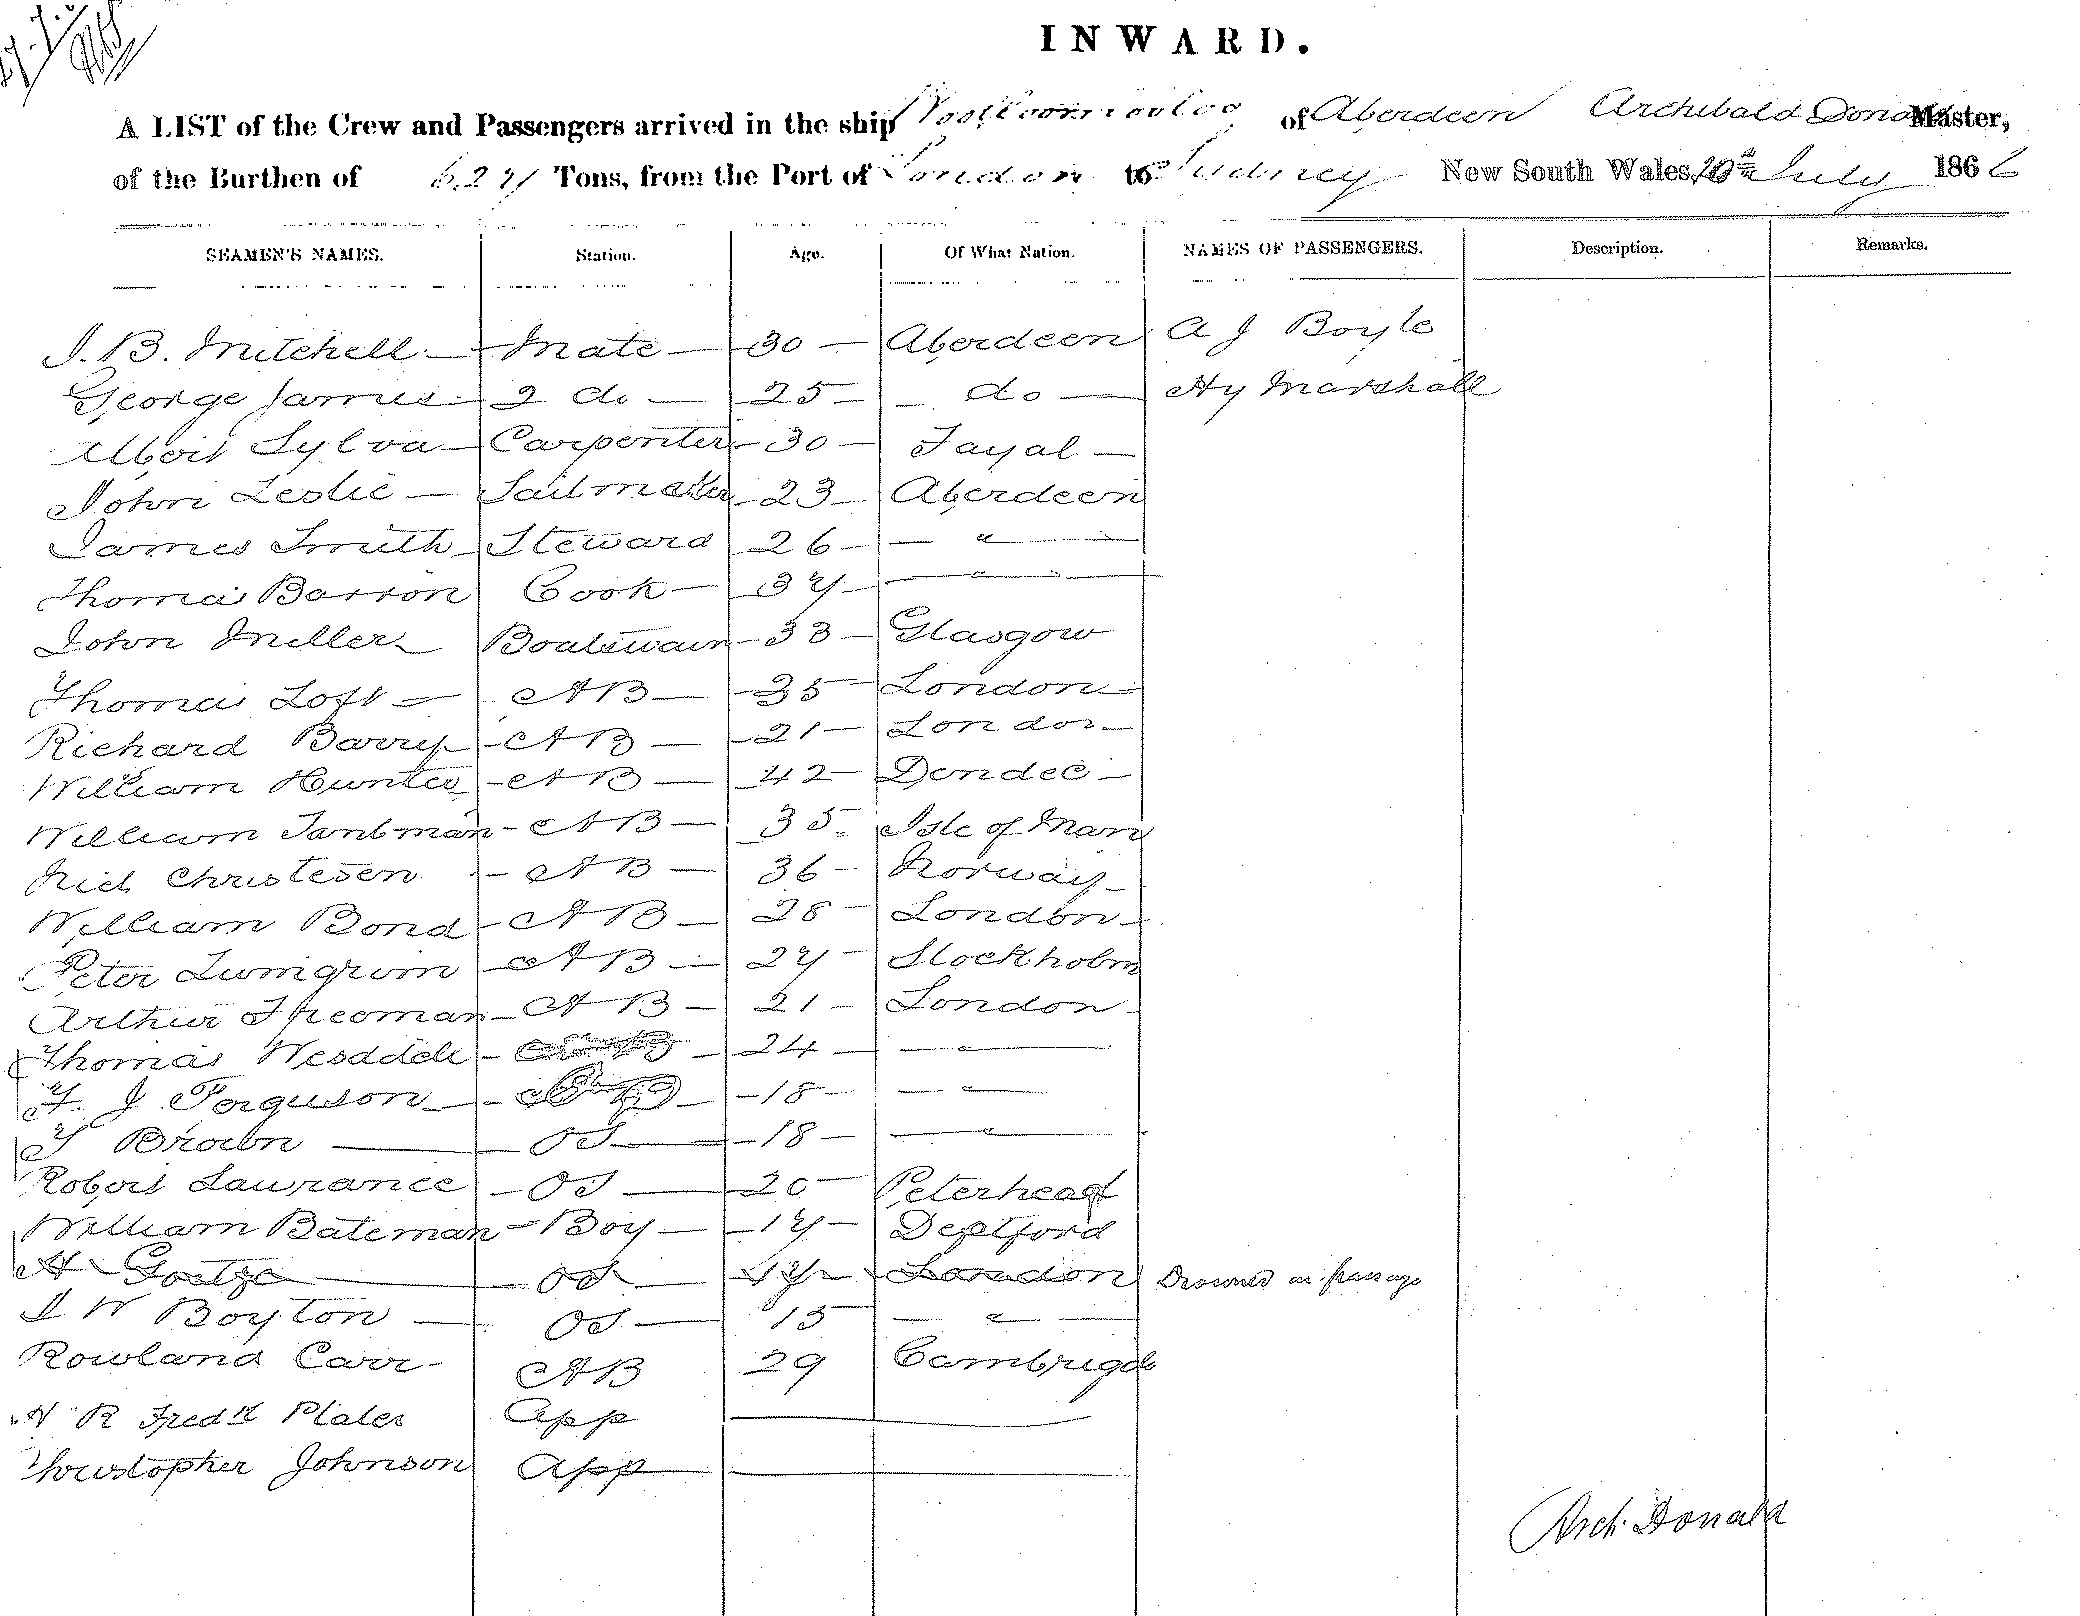 INWARD.
A LIST of the Crew and Passengers arrived in the ship Woolloomooloo of Aberdeen Archibald Donald Master,
of the Burthen of 627 Tons, from the Port of London to Sydney New South Wales, 10th July 1866
SEAMEN'S NAMES. Station. Age. Of What Nation. NAMES OF PASSENGERS. Description. Remarks.
J. B. Mitchell Mate 30 Aberdeen A J Boyle
George James 2 do 25 do Hy Marshall
Albert Sylva Carpenter 30 Fayal
John Leslie Sailmaker 23 Aberdeen
James Smith Steward 26 "
Thomas Barron Cook 37 "
John Miller Boatswain 33 Glasgow
Thomas Loft AB 35 London
Richard Barry AB 21 London
William Hunter AB 42 Dendee
William Tantman AB 35 Isle of Man
Christesen AB 36 Norway
William Bond AB 28 London
Peter AB 27 Stockholm
Arthur Freeman AB 21 London
Thomas 24 "
F. J Ferguson 18 "
T Brown OS 18 "
Robert Lawrance OS 20 Peterhead
William Bateman Boy 17 Deptford
H Goetze OS 17 London Drowned on passage
J W Boyton OS 15 "
Rowland Carr AB 29 Cambrigde
H R Fredk Plater App
Christopher Johnson App
Arch. Donald